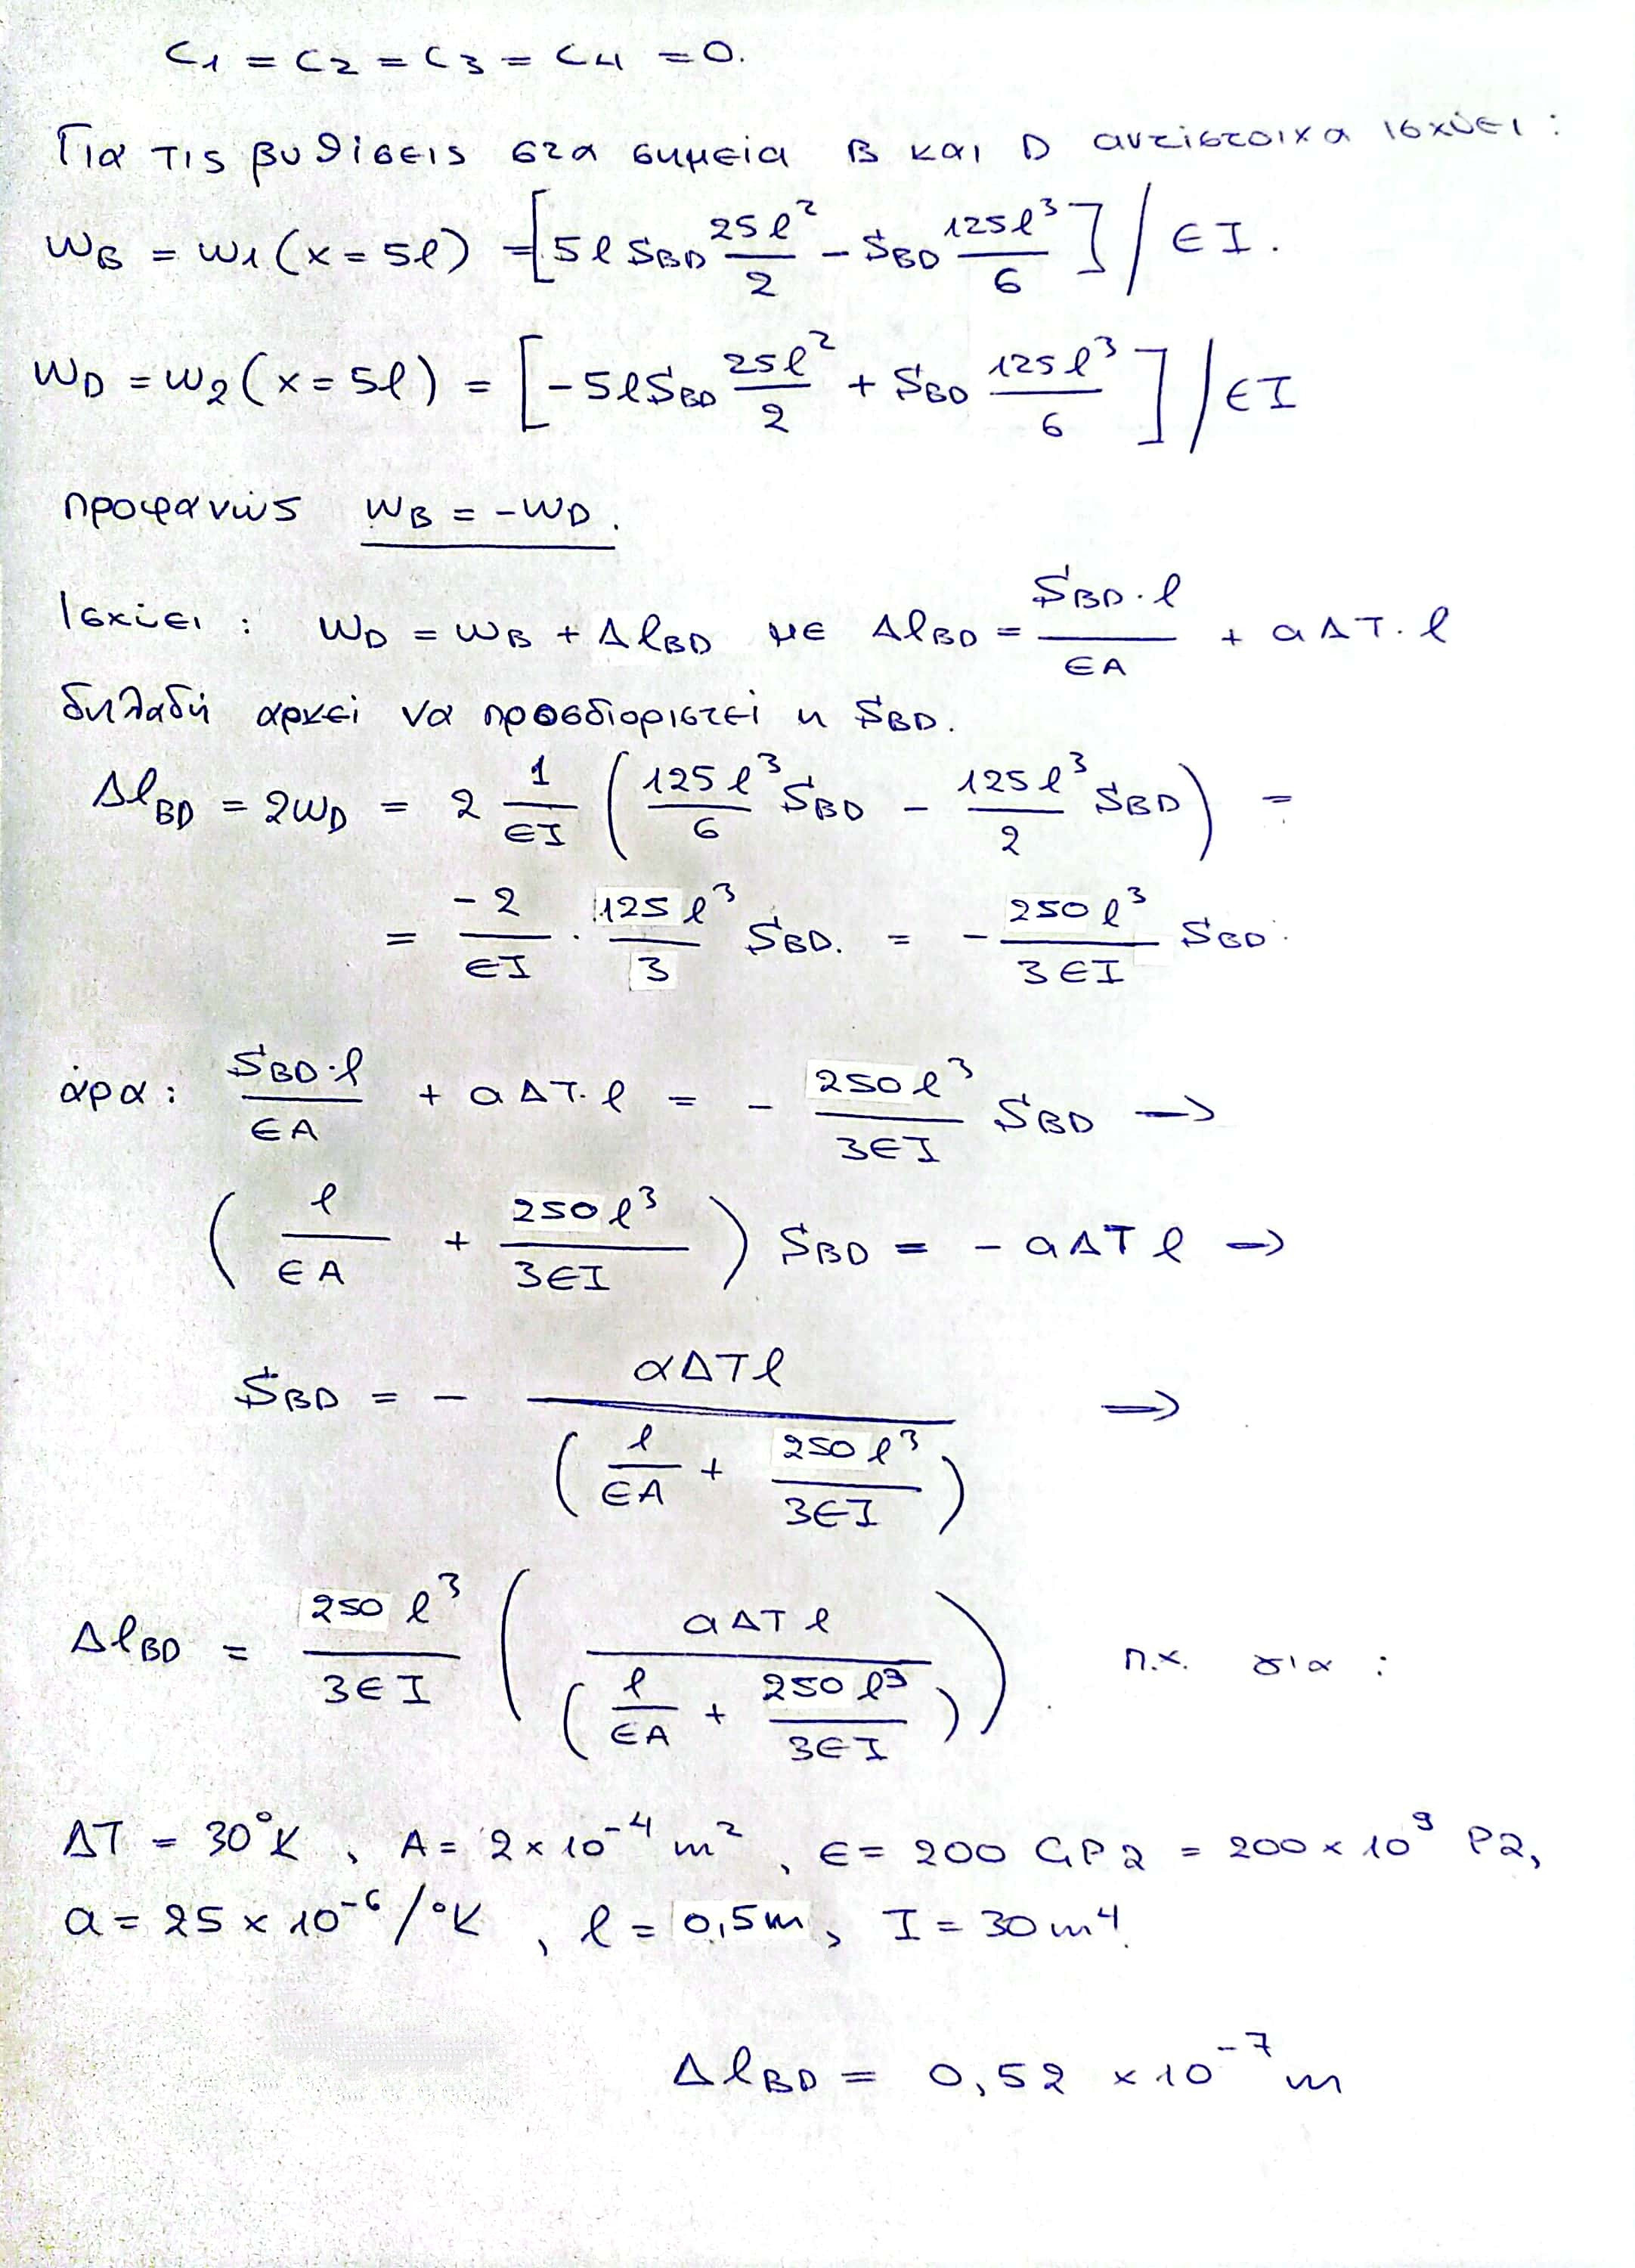 C1 = C2 = C3 = C4 = 0.
Για τις βυθίσεις στα σημεία B και D αντίστοιχα ισχύει :
wB = w1(x=5l) = [5l SBD 25l²/2 - SBD 125l³/6] / EI.
wD = w2(x=5l) = [-5l SBD 25l²/2 + SBD 125l³/6] / EI
προφανώς wB = -wD.
Ισχύει : wD = wB + ΔlBD με ΔlBD = SBD·l/EA + αΔT·l
δηλαδή αρκεί να προσδιοριστεί η SBD.
ΔlBD = 2wD = 2 1/EI (125l³/6 SBD - 125l³/2 SBD) =
= -2/EI · 125l³/3 SBD. = - 250l³/3EI SBD.
άρα : SBD·l/EA + αΔT·l = - 250l³/3EI SBD →
(l/EA + 250l³/3EI) SBD = - αΔT l →
SBD = - αΔTl/(l/EA + 250l³/3EI) →
ΔlBD = 250l³/3EI (αΔT l/(l/EA + 250l³/3EI)). π.χ. για :
ΔT = 30°K, A = 2×10⁻⁴ m², E = 200 GPa = 200×10⁹ Pa,
α = 25×10⁻⁶/°K, l = 0,5m, I = 30m⁴.
ΔlBD = 0,52 × 10⁻⁷ m